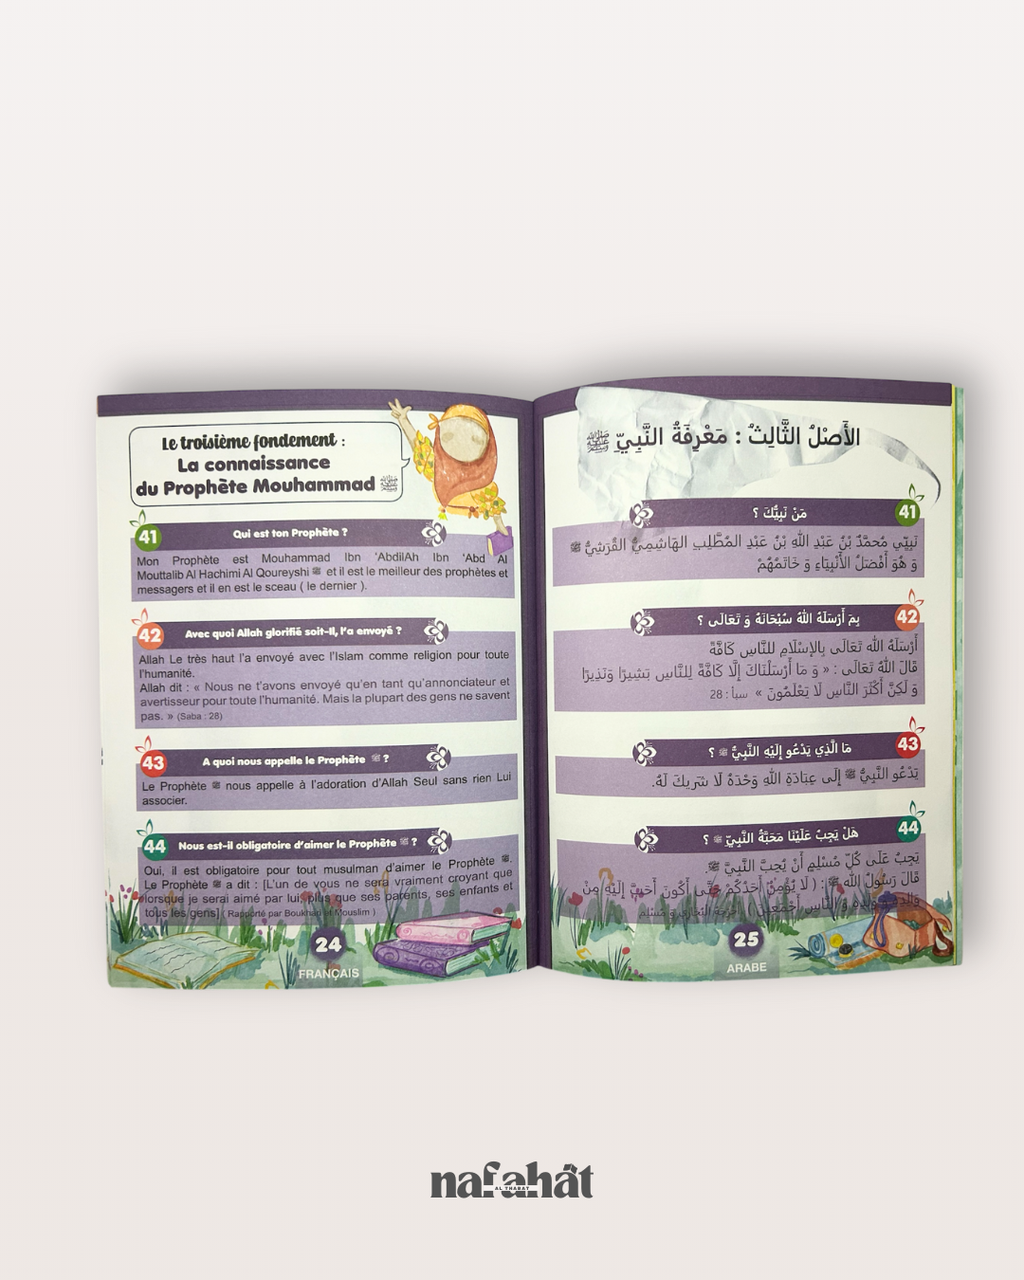 Le troisième fondement :
La connaissance
du Prophète Mouhammad ﷺ
41
Qui est ton Prophète ?
Mon Prophète est Mouhammad Ibn ‘AbdilAh Ibn ‘Abd Al
Mouttalib Al Hachimi Al Qoureyshi ﷺ et il est le meilleur des prophètes et
messagers et il en est le sceau ( le dernier ).
42
Avec quoi Allah glorifié soit-Il, l’a envoyé ?
Allah Le très haut l’a envoyé avec l’Islam comme religion pour toute
l’humanité.
Allah dit : « Nous ne t’avons envoyé qu’en tant qu’annonciateur et
avertisseur pour toute l’humanité. Mais la plupart des gens ne savent
pas. » (Saba : 28)
43
A quoi nous appelle le Prophète ﷺ ?
Le Prophète ﷺ nous appelle à l’adoration d’Allah Seul sans rien Lui
associer.
44
Nous est-il obligatoire d’aimer le Prophète ﷺ ?
Oui, il est obligatoire pour tout musulman d’aimer le Prophète ﷺ.
Le Prophète ﷺ a dit : [L’un de vous ne sera vraiment croyant que
lorsque je serai aimé par lui plus que ses parents, ses enfants et
tous les gens] ( Rapporté par Boukhari et Mouslim )
24
FRANÇAIS
الأَصْلُ الثَّالِثُ : مَعْرِفَةُ النَّبِيِّ ﷺ
41
مَنْ نَبِيُّكَ ؟
نَبِيِّي مُحمَّدُ بْنُ عَبْدِ اللهِ بْنُ عَبْدِ المُطَّلِبِ الهَاشِمِيُّ القُرَشِيُّ ﷺ
وَ هُوَ أَفْضَلُ الأَنْبِيَاءِ وَ خَاتَمُهُمْ
42
بِمَ أَرْسَلَهُ اللهُ سُبْحَانَهُ وَ تَعَالَى ؟
أَرْسَلَهُ الله تَعَالَى بِالإِسْلَامِ لِلنَّاسِ كَافَّةً
قَالَ اللهُ تَعَالَى : « وَ مَا أَرْسَلْنَاكَ إِلَّا كَافَّةً لِلنَّاسِ بَشِيرًا وَنَذِيرًا
وَ لَكِنَّ أَكْثَرَ النَّاسِ لَا يَعْلَمُونَ » سبأ : 28
43
مَا الَّذِي يَدْعُو إِلَيْهِ النَّبِيُّ ﷺ ؟
يَدْعُو النَّبِيُّ ﷺ إِلَى عِبَادَةِ اللهِ وَحْدَهُ لَا شَرِيكَ لَهُ.
44
هَلْ يَجِبُ عَلَيْنَا مَحَبَّةُ النَّبِيِّ ﷺ ؟
يَجِبُ عَلَى كُلِّ مُسْلِمٍ أَنْ يُحِبَّ النَّبِيَّ ﷺ.
قَالَ رَسُولُ الله ﷺ : ( لَا يُؤْمِنُ أَحَدُكُمْ حَتَّى أَكُونَ أَحَبَّ إِلَيْهِ مِنْ
وَالِدِهِ وَوَلَدِهِ وَ النَّاسِ أَجْمَعِينَ ) أخرجه البخاري و مسلم
25
ARABE
nafahât
AL THABAT